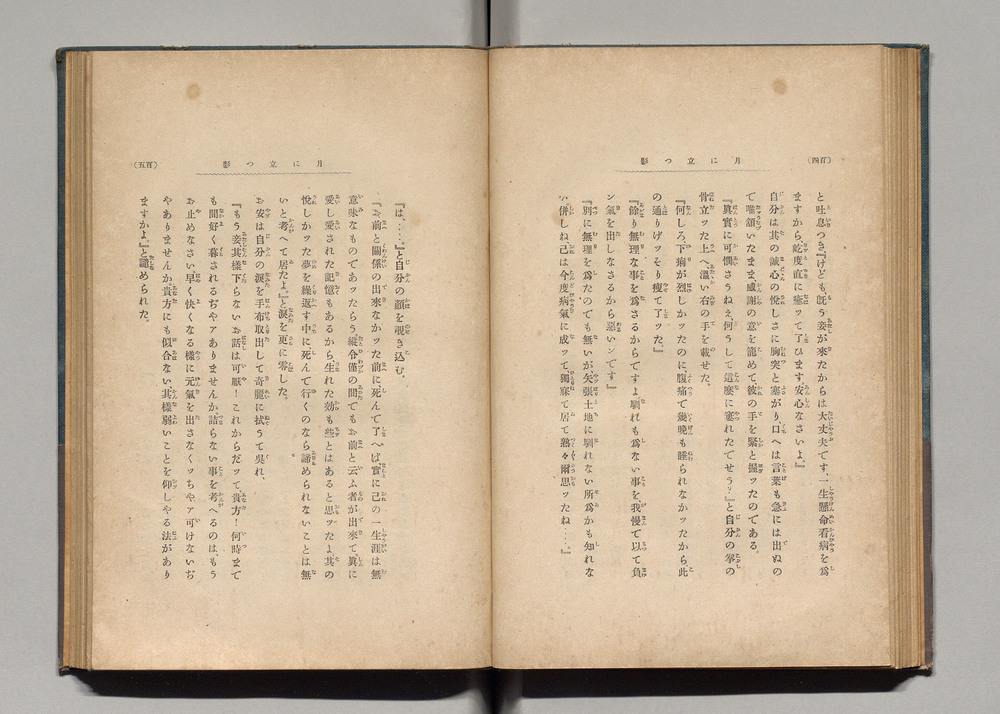 (四百)
月に立つ影
と吐息つき『けども、既う妾が來たからは大丈夫です、一生懸命看病を爲
ますから、屹度直に癒ッて了ひます、安心なさいよ。』
自分は其の誠心の悅しさに胸突と塞がり、口へは言葉も急には出ぬの
で嚙頷いたまま感謝の意を籠めて彼の手を緊と握ッたのである。
『眞實に可憫さうねえ、何うして這麼に窶れたでせう?』と自分の拳の
骨立ッた上へ溫い右の手を載せた。
『何しろ下痢が烈しかッたのに、腹痛で幾晩も睡られなかッたから、此
の通りげッそり瘦て了ッた。』
『餘り無理な事を爲さるからですよ、馴れも爲ない事を、我慢で以て負
ン氣を出しなさるから惡いンです』
『別に無理を爲たのでも無いが、矢張土地に馴れない所爲かも知れな
い、併しね、己は今度病氣に成ッて獨寐て居て熟々爾思ッたね‥‥。』
月に立つ影
(五百)
『は、‥‥。』と自分の顏を覗き込む。
『お前と關係の出來なかッた前に死んで了へば、實に己の一生涯は無
意味なものであッたらう、縱令僅の間でもお前と云ふ者が出來て、眞に
愛し愛された記憶もあるから、生れた効も些とはあると思ッたよ、其の
悅しかッた夢を繰返す中に死んで行くのなら諦められないことは無
いと考へて居たよ。』と淚を更に零した。
お安は自分の淚を手布取出して奇麗に拭うて吳れ、
『もう妾其樣下らないお話は可厭!これからだッて、貴方!何時まで
も間好く暮されるぢやアありませんか、詰らない事を考へるのは、もう
お止めなさい、早く快くなる樣に元氣を出さなくッちやア可けないぢ
やありませんか、貴方にも似合ない、其樣弱いことを仰しやる法があり
ますかよ。』と諫められた。